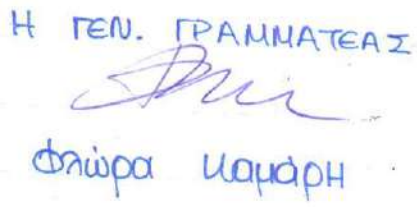 Η ΓΕΝ. ΓΡΑΜΜΑΤΕΑΣ
Φλώρα Καμάρη